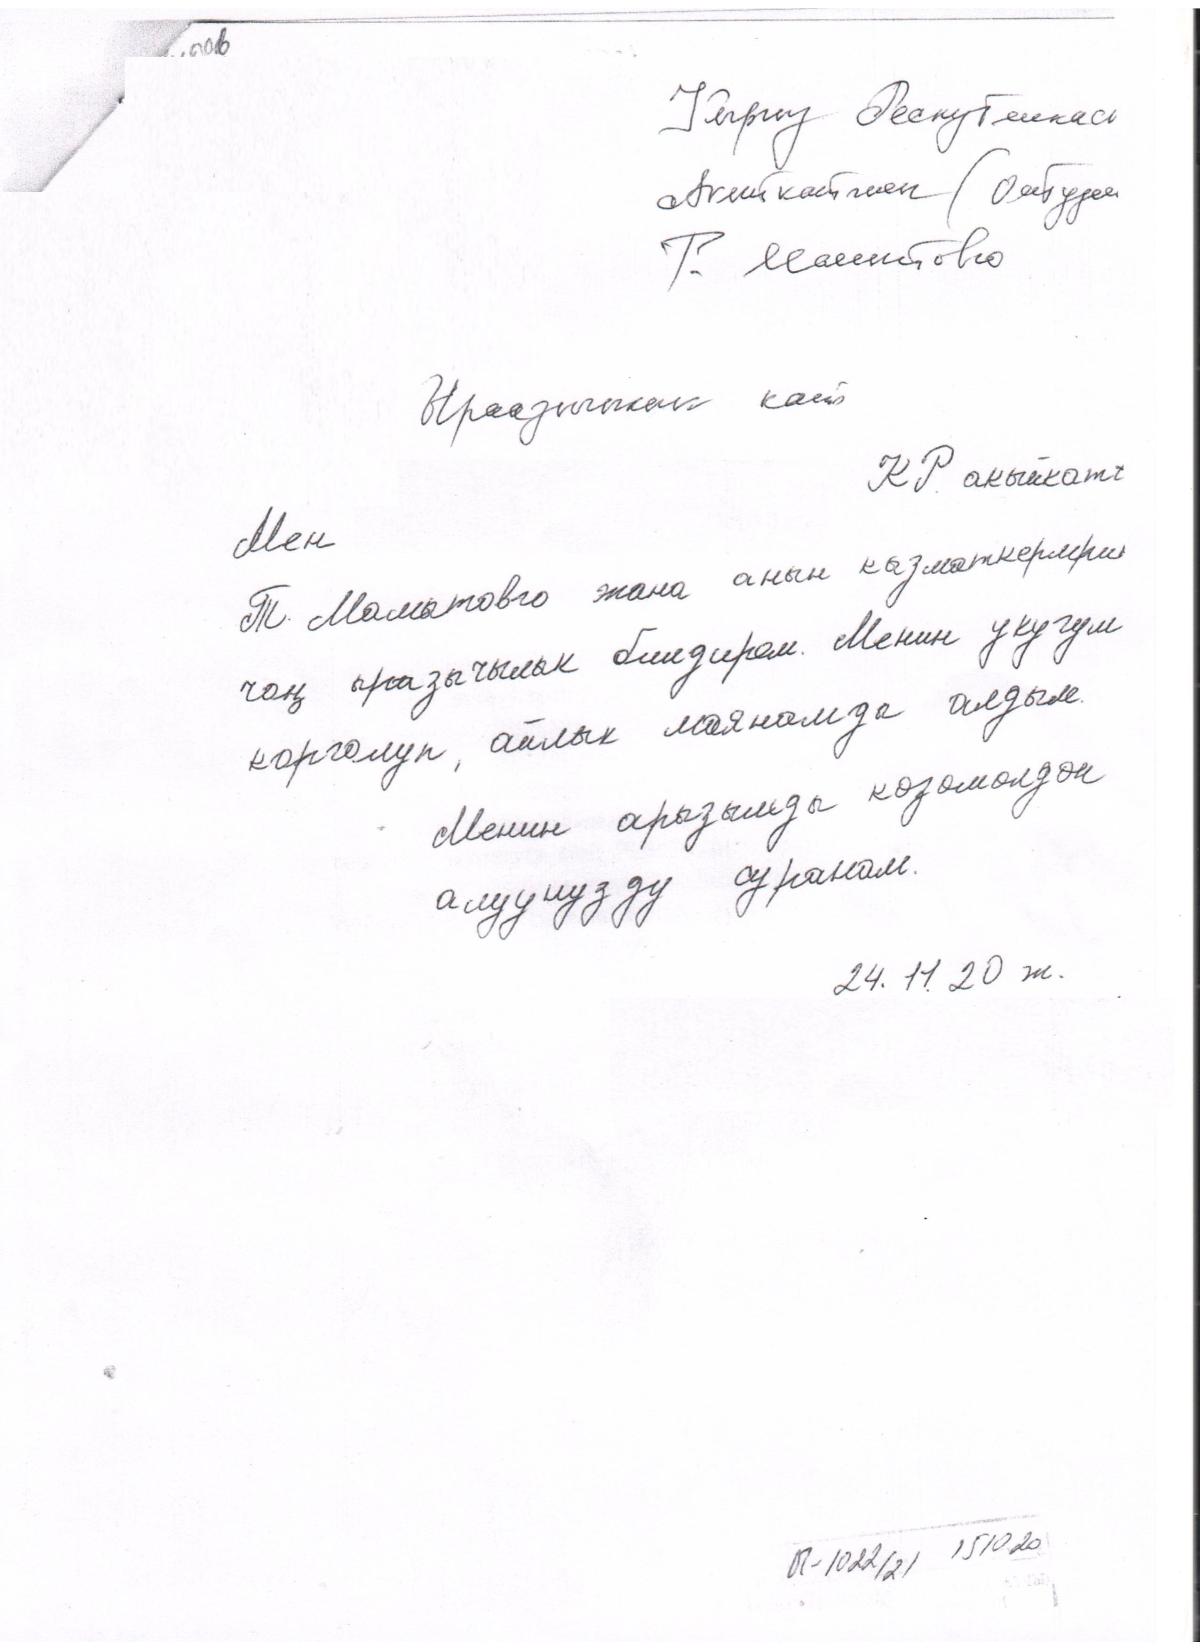 Кыргыз Республикасы
Акыйкатчы (Омбудсм
Т. Мамытовго
Ыраазычылык кат
КР. акыйкатч
Мен
Т. Маматовго жана анын кызматкерлерин
чоң ыразычылык билдирем. Менин укугум
корголуп, айлык маянамды алдым.
Менин арызымды козомолдон
алуунузду суранам.
24.11.20 ж.
П-1022/21 151020